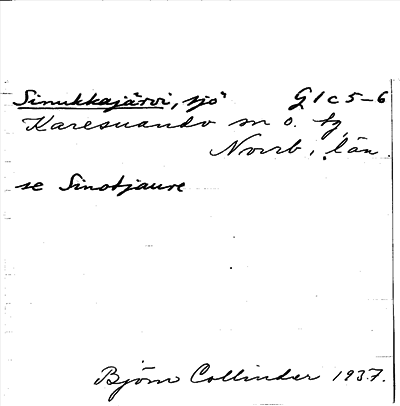 Sinukkajärvi, sjö G1c5-6
Karesuando sn o. tg,
Norrb. län
se Sinotjaure
Björn Collinder 1937.